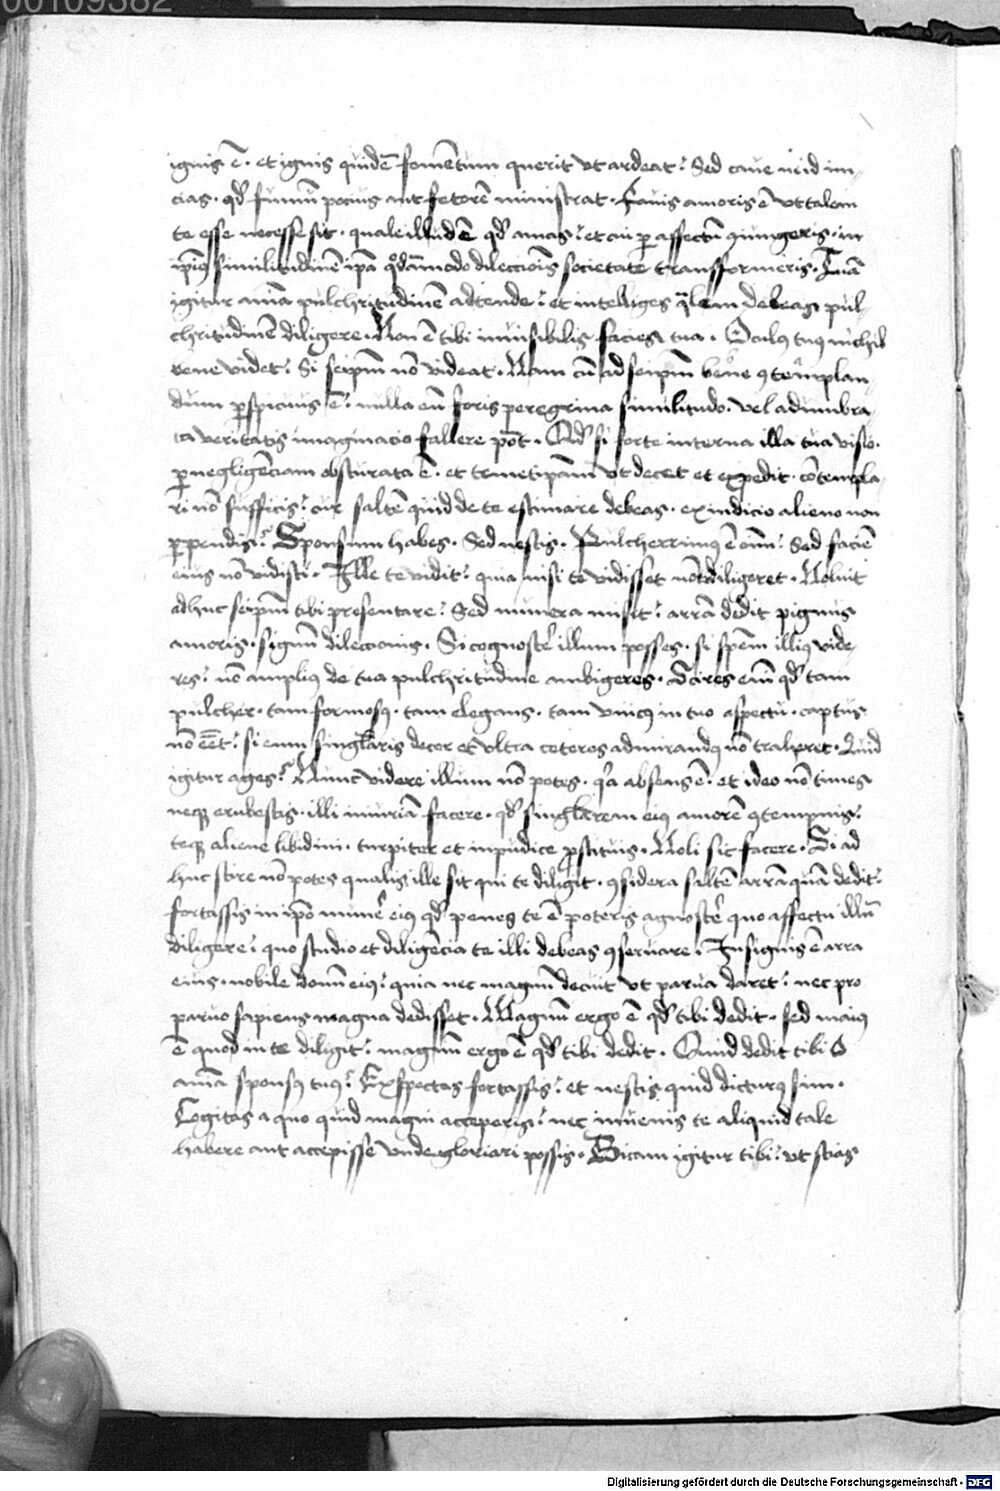 00109382
ignis ē. et ignis quidē fomētum querit vt ardeat. Sed caue ne id in
icias. qd̄ fumū pocius aut fetorē ministrat. Ea vis amoris ē vt talem
te esse necesse sit. quale illud ē qd̄ amas. et cui p̱ affectū ꝯiungeris. in
ip̄ius similitudinē ip̄a qͦdāmodo dilecciōis societate transformeris. Tuā
igitur aīa pulchritudinē adtende. et intelliges q̄lem debeas pul
chritudinē diligere. Non ē tibi inuisibilis facies tua. Oculꝰ tuꝰ nichil
bene videt. Si seip̄m nō videat. Nam cū ad seip̄m ꝯtemplan
dum p̱spicuus ē. nulla eū foris peregrina similitudo. vel adumbra
ta veritatis imaginacio fallere pōt. Qd̄ si forte interna illa tua visio.
p̱ negligēciam obscurata ē. et temetip̄am vt decet et expedit. cōtempla
ri nō sufficis. cur saltē quid de te estimare debeas. ex iudicio alieno non
p̱pendis. Sponsum habes. Sed nescis. Pulcherrimꝰ ē oīm. Sed faciē
eius nō vidisti. Ille te vidit. quia nisi te vidisset nō te diligeret. Noluit
adhuc seip̄m tibi presentare. Sed munera misit. arrā dedit pignus
amoris. signū dileccionis. Si cognosce̅ illum posses. si sp̄em illiꝰ vide
res. nō ampliꝰ de tua pulchritudine ambigeres. Scires eni̅ qd̄ tam
pulcher. tam formosꝰ. tam elegans. tam vnicꝰ in tuo aspectu. captus
nō eēt. si eum singl̄aris decor et vltra ceteros admirandꝰ nō traheret. Quid
igitur ages. Nunc videre illum nō potes. qͥa absens ē. et ideo nō times
neqꝫ erubescis. illi iniuriā facere. qd̄ singl̄arem eiꝰ amorē ꝯtempnis.
teqꝫ aliene libidini. turpiter et inpudice ꝓstituis. Noli sic facere. Si ad
huc scire nō potes qualis ille sit qui te diligit. ꝯsidera saltē arrā quā dedit.
fortassis in ip̄o mune̅ eiꝰ qd̄ penes te ē poteris agnosce̅ quo affectu illū
diligere. quo studio et diligēcia te illi debeas ꝯseruare. Insignis ē arra
eius. nobile donū eiꝰ. quia nec magnū decuit vt parua daret. nec pro
paruo sapiens magna dedisset. Magnū ergo ē qd̄ tibi dedit. sed maius
ē quod in te diligit. magnū ergo ē qd̄ tibi dedit. Quid dedit tibi o
aīa sponsꝰ tuꝰ. Exspectas fortassis. et nescis quid dicturꝰ sim.
Cogitas a quo quid magni acceperis. nec inuenis te aliquid tale
habere aut accepisse vnde gloriari possis. Dicam igitur tibi. vt scias
Digitalisierung gefördert durch die Deutsche Forschungsgemeinschaft - DFG